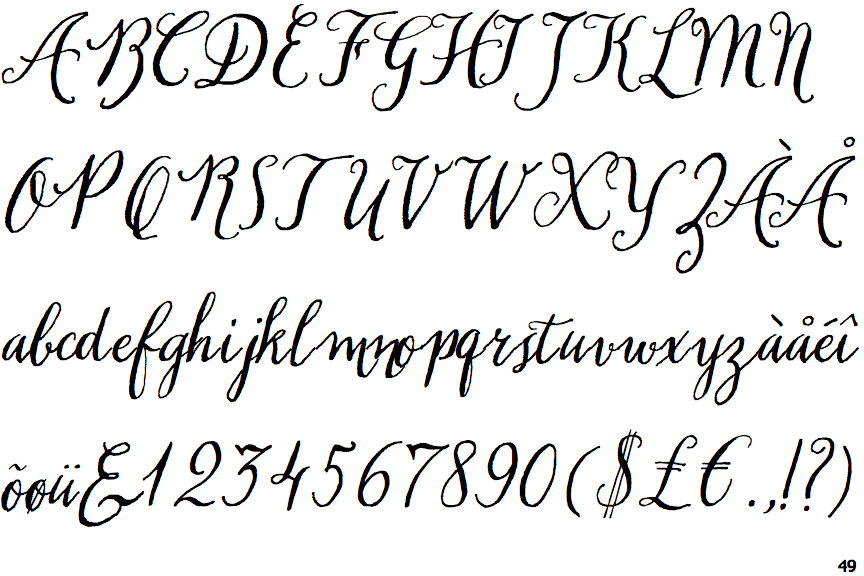 ABCDEFGHIJKLMN
OPQRSTUVWXYZÀÅ
abcdefghijklmnopqrstuvwxyzàåéî
õøü&1234567890($£€.,!?)
49